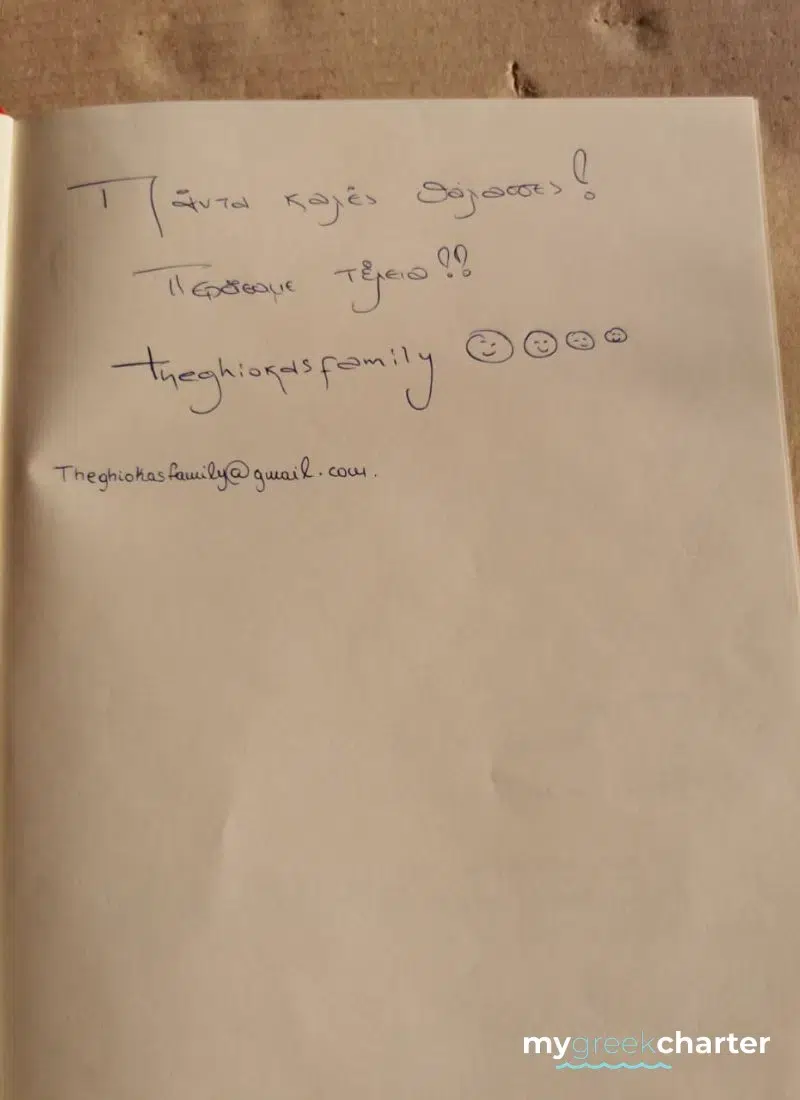 Πάντα καλές θάλασσες!
Περάσαμε τέλεια!!
theghiokasfamily
Theghiokasfamily@gmail.com.
mygreekcharter